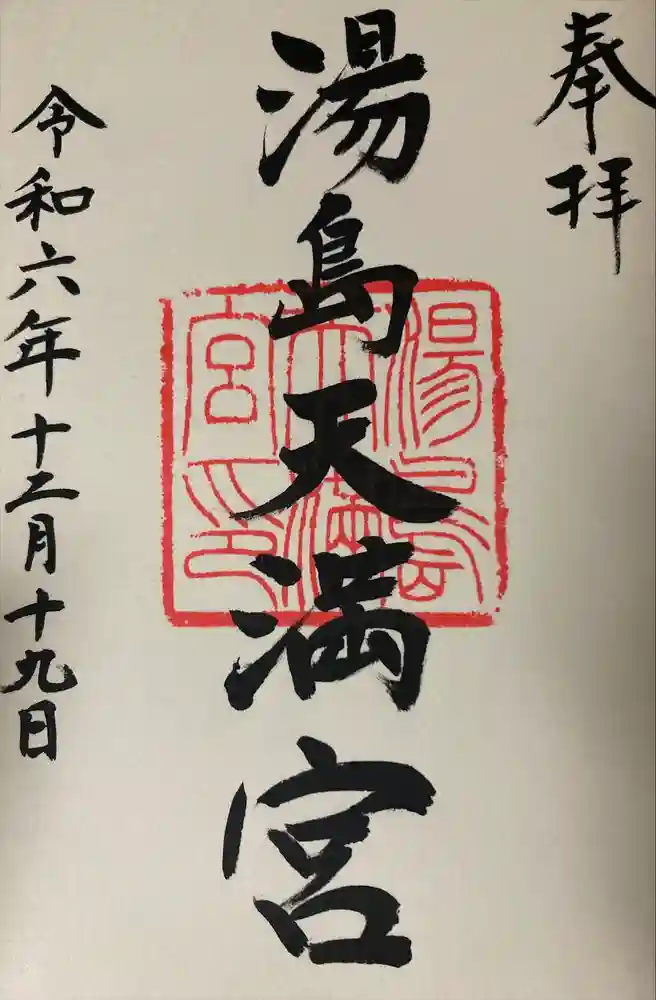 奉拝
湯島天満宮
湯島天満宮印
令和六年十二月十九日